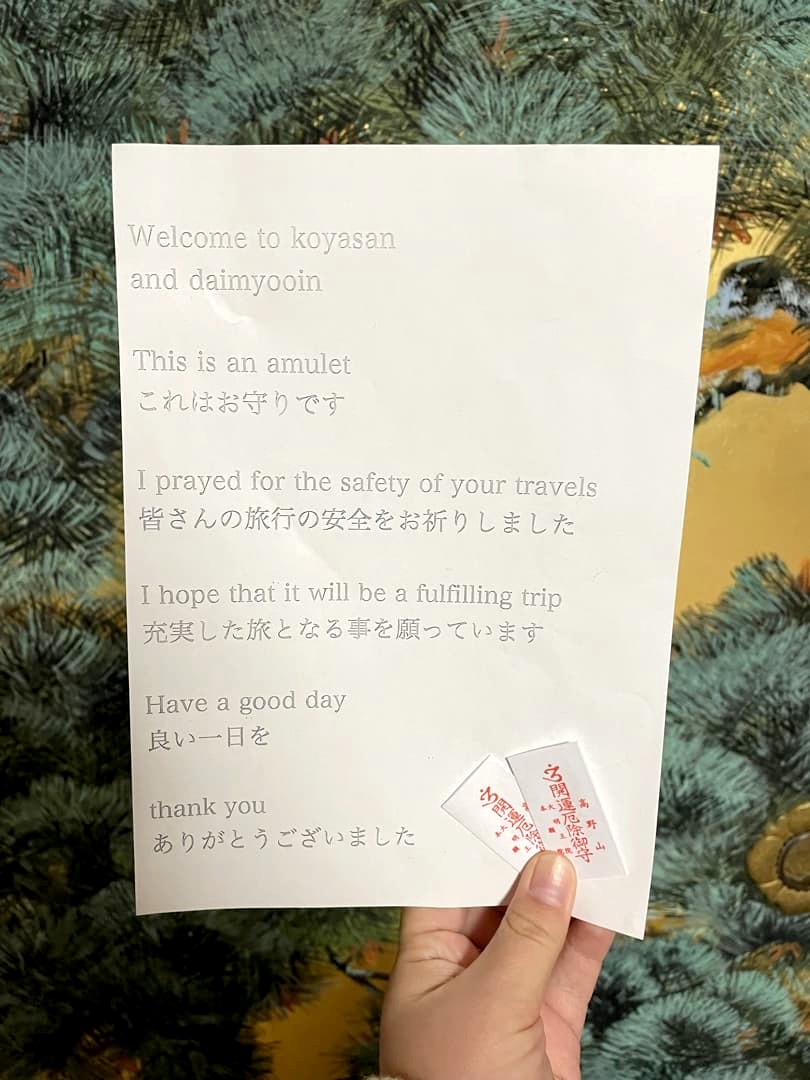 Welcome to koyasan
and daimyooin
This is an amulet
これはお守りです
I prayed for the safety of your travels
皆さんの旅行の安全をお祈りしました
I hope that it will be a fulfilling trip
充実した旅となる事を願っています
Have a good day
良い一日を
thank you
ありがとうございました
開運厄除御
高野山
開運厄除御守